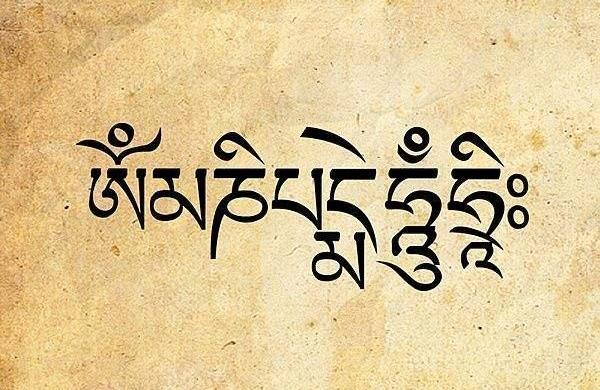 ༀམཎིཔདྨེཧཱུྃཧྲཱིཿ